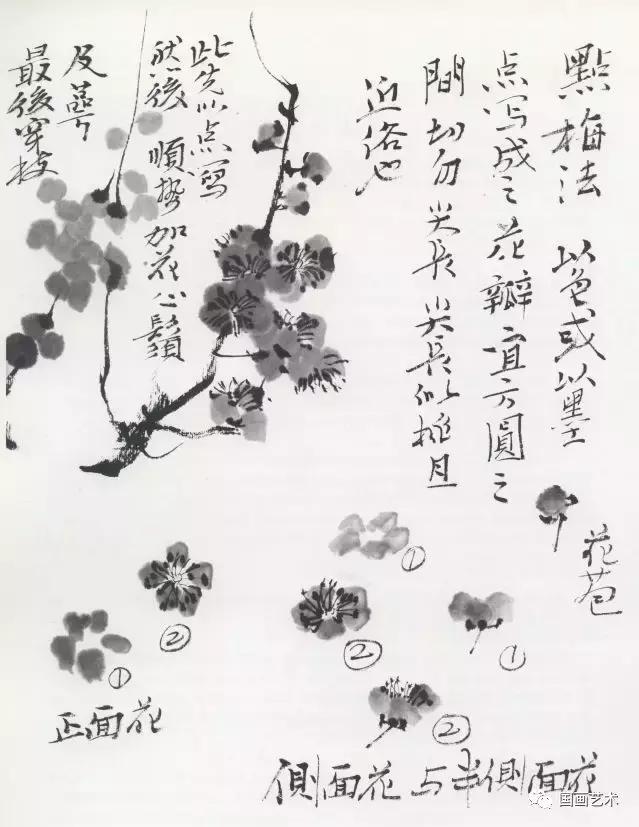 點梅法 以色或以墨
点写成之花瓣宜方圓之
間切勿尖長尖長似桃且
近俗也
此先以点寫
然後 順势加花心鬚
及萼
最後穿枝
花苞
①
②
①
②
①
②
正面花
側面花与半側面花
国画艺术